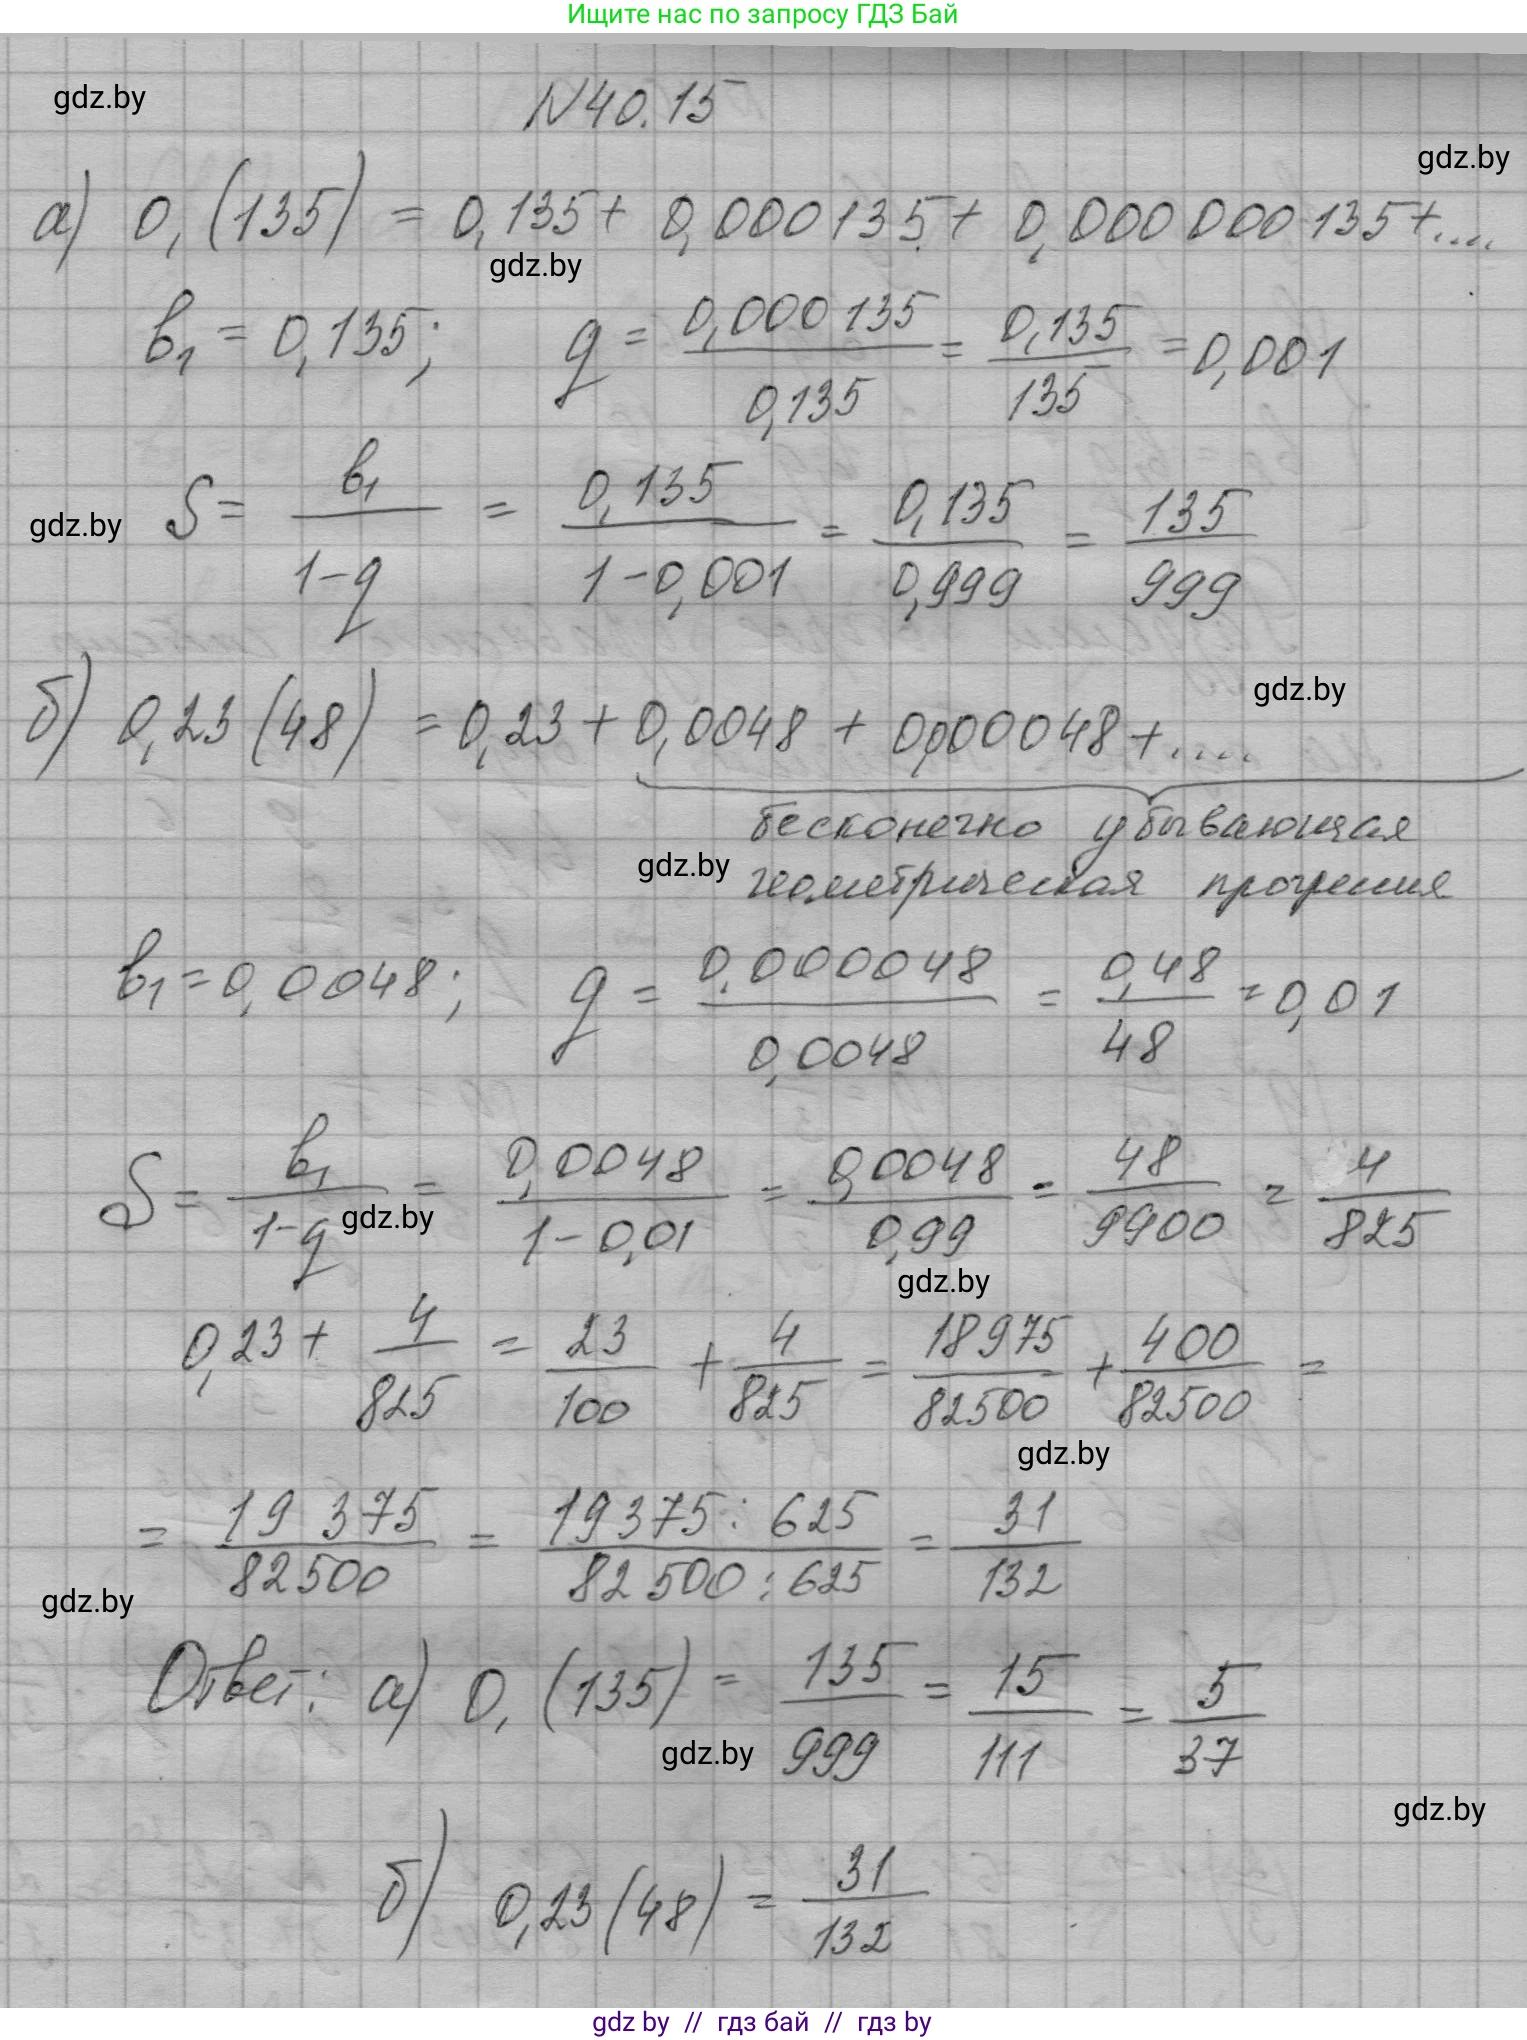 Ищите нас по запросу ГДЗ Бай
gdz.by
N40.15
gdz.by
а) 0,(135) = 0,135 + 0,000135 + 0,000 000 135 + ....
gdz.by
b₁ = 0,135; q = 0,000 135 / 0,135 = 0,135 / 135 = 0,001
gdz.by
S = b₁ / 1-q = 0,135 / 1-0,001 = 0,135 / 0,999 = 135 / 999
gdz.by
б) 0,23(48) = 0,23 + 0,0048 + 0,000048 + ....
бесконечно убывающая
gdz.by
геометрическая прогрессия
b₁ = 0,0048; q = 0,000048 / 0,0048 = 0,48 / 48 = 0,01
S = b₁ / 1-q = 0,0048 / 1-0,01 = 0,0048 / 0,99 = 48 / 9900 = 4 / 825
gdz.by
gdz.by
0,23 + 4 / 825 = 23 / 100 + 4 / 825 = 18975 / 82500 + 400 / 82500 =
gdz.by
= 19 375 / 82500 = 19375 : 625 / 82 500 : 625 = 31 / 132
gdz.by
Ответ: а) 0,(135) = 135 / 999 = 15 / 111 = 5 / 37
gdz.by
gdz.by
б) 0,23(48) = 31 / 132
gdz by // гдз бай // гдз by